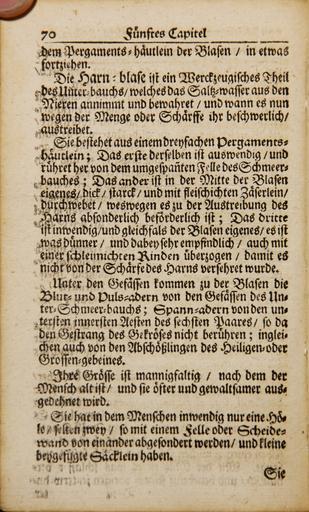 70 Fünftes Capitel
dem Pergaments-häutlein der Blasen / in etwas
fortziehen.
Die Harn-blase ist ein Werckzeugisches Theil
des Unter-bauchs / welches das Saltz-wasser aus den
Nieren annimmt und bewahret / und wann es nun
wegen der Menge oder Schärffe ihr beschwerlich /
austreibet.
Sie bestehet aus einem dreyfachen Pergaments-
häutlein; Das erste derselben ist auswendig / und
rühret her von dem umgespañten Felle des Schmeer-
bauches; Das ander ist in der Mitte der Blasen
eigenes / dick / starck / und mit fleischichten Zäserlein /
durchwebet / weswegen es zu der Austreibung des
Harns absonderlich beförderlich ist; Das dritte
ist inwendig / und gleichfals der Blasen eigenes / es ist
was dünner / und dabey sehr empfindlich / auch mit
einer schleimichten Rinden überzogen / damit es
nicht von der Schärfe des Harns versehret wurde.
Unter den Gefässen kommen zu der Blasen die
Blut- und Puls-adern von den Gefässen des Un-
ter-Schmeer-bauchs; Spann-adern von den un-
tersten innersten Aesten des sechsten Paares / so da
den Gestrang des Gekröses nicht berühren; inglei-
chen auch von den Abschößlingen des Heiligen- oder
Grossen-gebeines.
Ihre Grösse ist mannigfaltig / nach dem der
Mensch alt ist / und sie öfter und gewaltsamer aus-
gedehnet wird.
Sie hat in dem Menschen inwendig nur eine Hö-
le / selten zwey / so mit einem Felle oder Scheide-
wand von einander abgesondert werden / und kleine
beygefügte Säcklein haben.
Sie